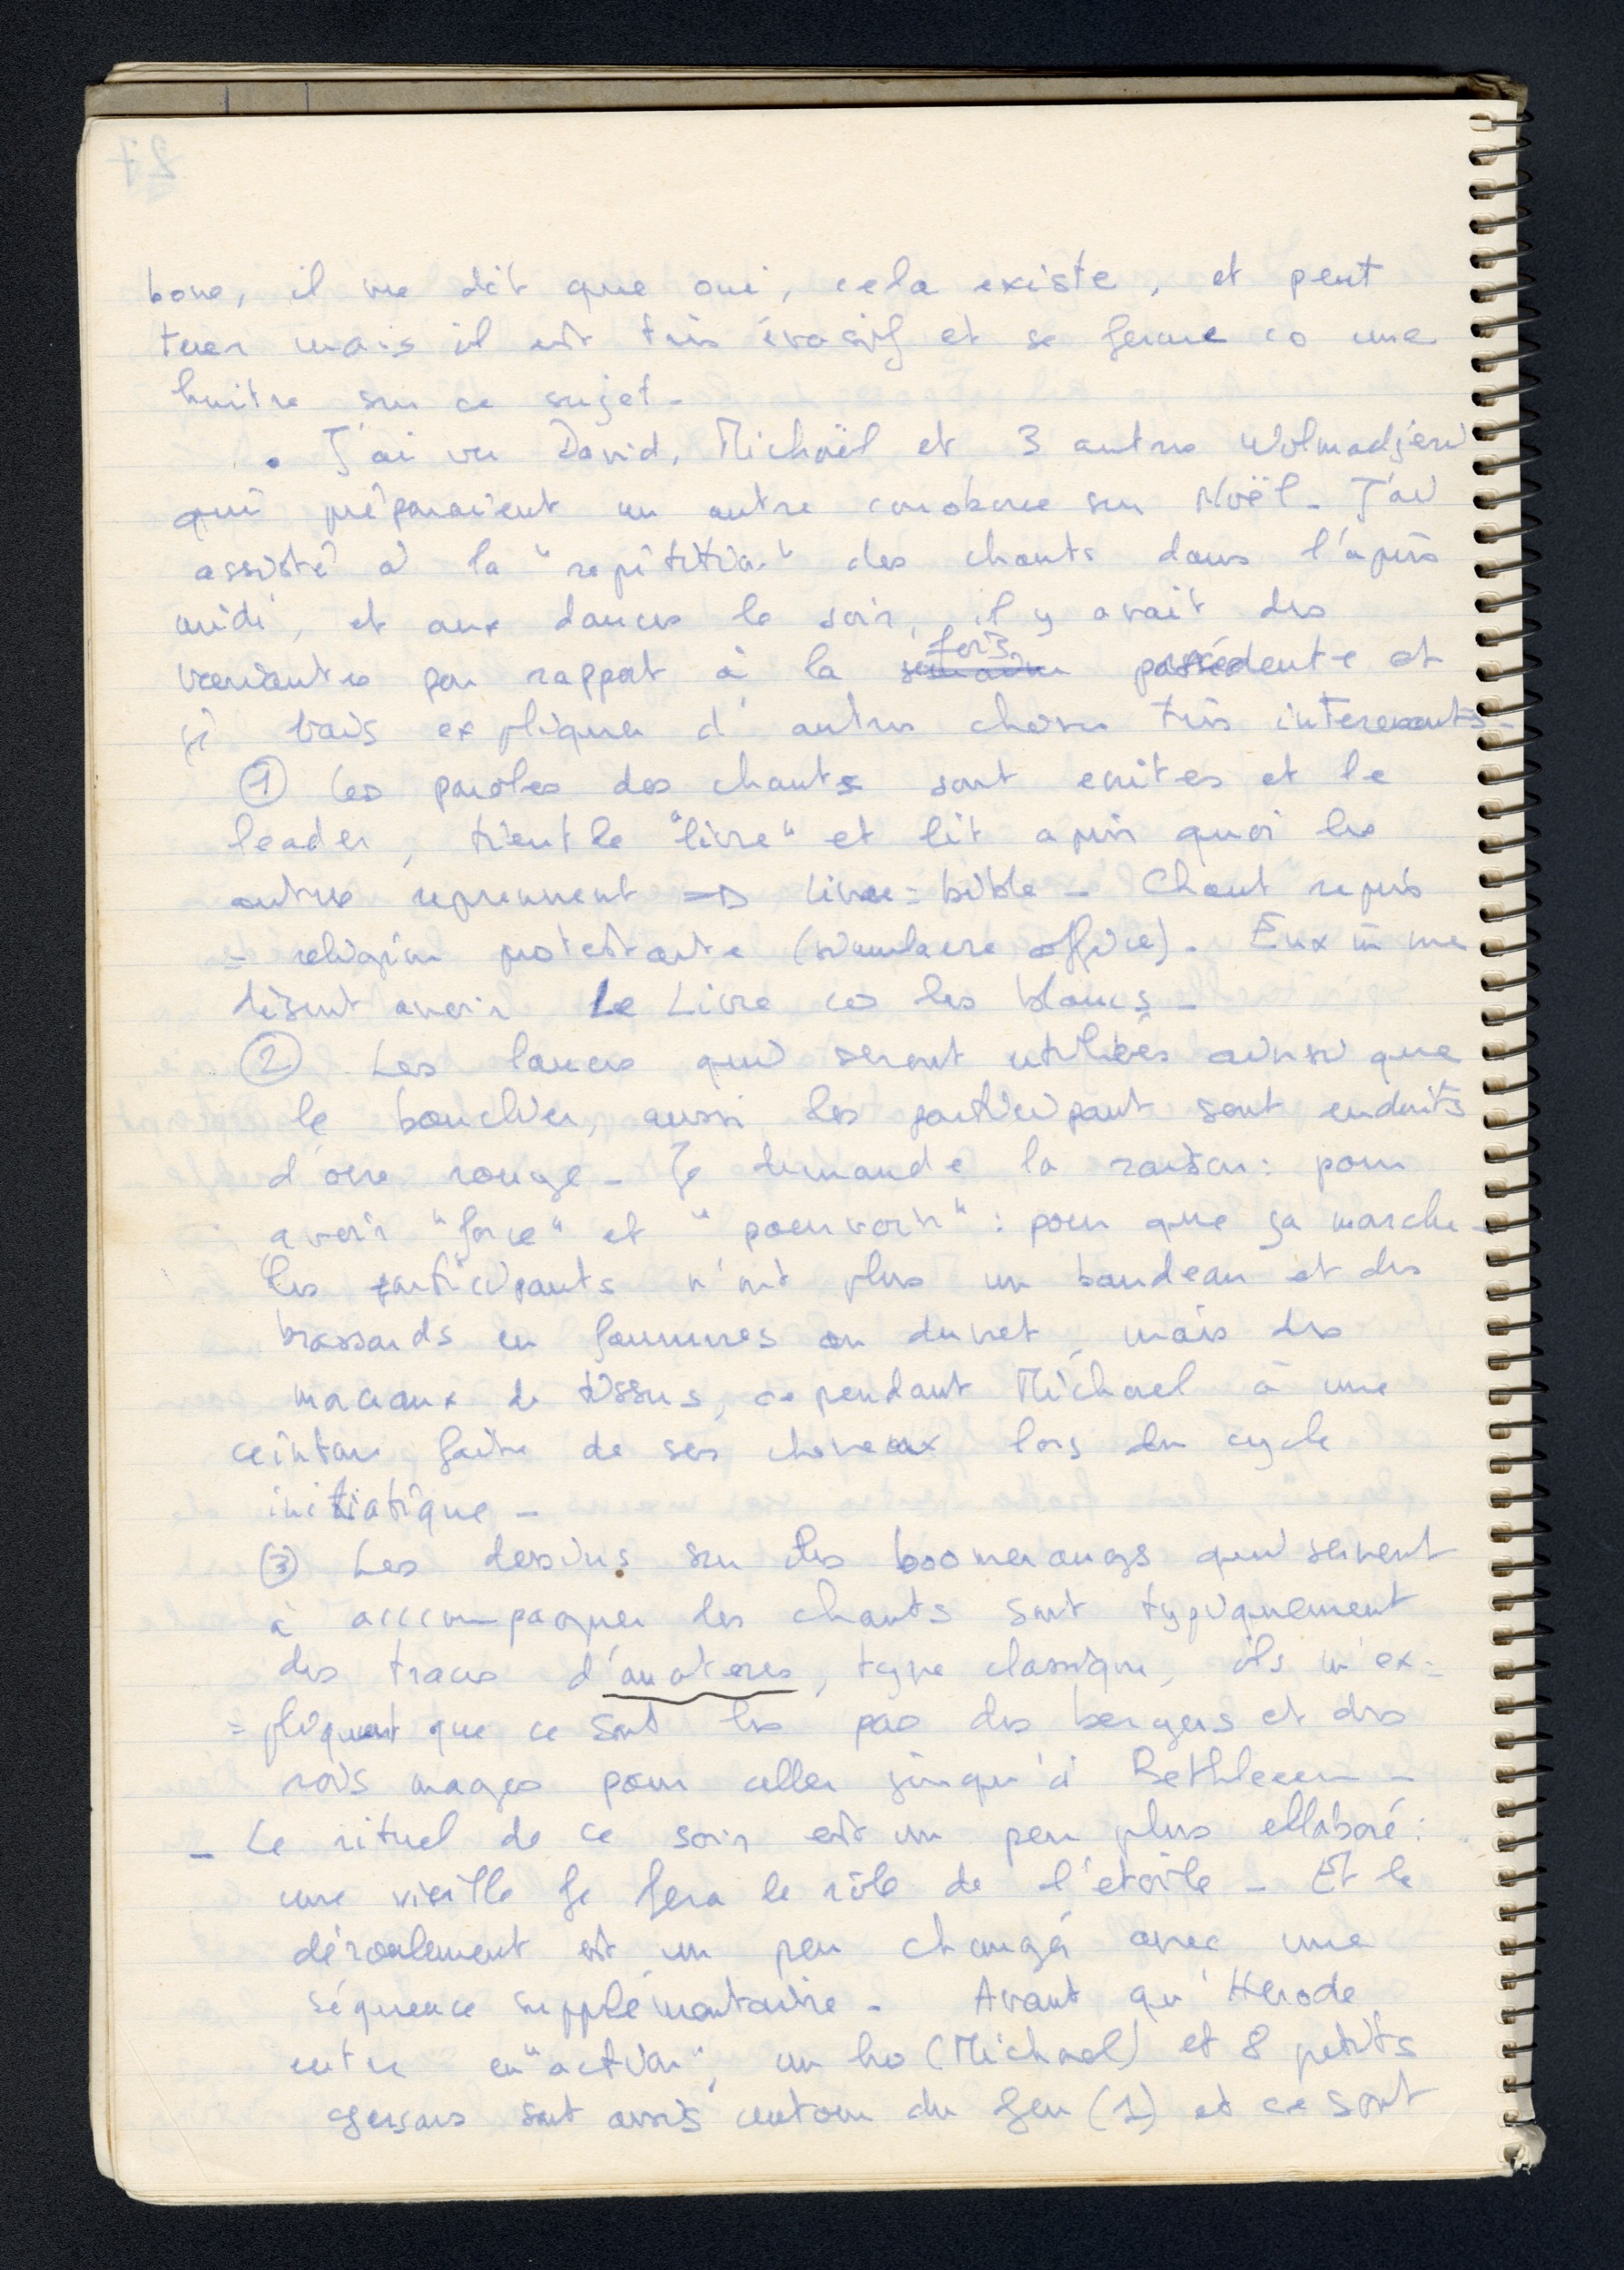 bone, il me dit que oui, cela existe, et peut
tuer mais il est très évasif et se ferme co une
huitre sur ce sujet -
• J'ai vu David, Michaël et 3 autres Wolmadjeri
qui préparaient un autre coroboree sur Noël - J'ai
assisté à la "répétition" des chants dans l'après
midi, et aux dances le soir, il y avait des
variantes par rapport à la semaine fois précédente et
je vais expliquer d'autres choses très interessants -
① Les paroles des chants sont ecrites et le
leader, tient le "livre" et lit après quoi les
autres reprennent => Livre = bible - Chant repris
= religion protestante (simulacre office). Eux m̄ me
disent avoir Le Livre co les blancs -
② Les lances qui seront utilisées ainsi que
le bouclier, aussi les participant sont enduits
d'ocre rouge - Je demande la raison: pour
avoir "force" et "pouvoir" : pour que ça marche -
les participants n'ont plus un bandeau et des
brassards en duvet, mais des
morceaux de tissus, cependant Michael à une
ceinture faite de ses cheveux lors du cycle
initiatique -
③ Les dessins sur les boomerangs qui servent
à acccompagner les chants sont typiquement
des traces d', type classique, ils m'ex=
=pliquent que ce sont les pas des bergers et des
rois mages pour aller jusqu'à Bethleem -
- Le rituel de ce soir est un peu plus ellaboré:
une vieille fe fera le rôle de l'étoile - Et le
déroulement est un peu changé avec une
séquence supplémentaire - Avant qu'Herode
entre en "action", un ho (Michael) et 8 petits
garçons sont assis autour du feu (1) et ce sont
27